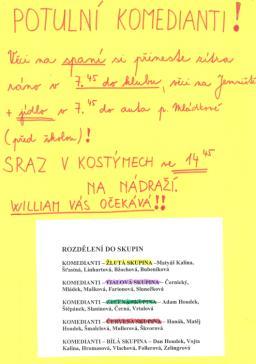 POTULNÍ KOMEDIANTI!
Věci na spaní si přineste zítra
ráno v 7.45 do klubu, věci na
+ jídlo v 7.45 do auta p. Mládkové
(před školou)!
SRAZ V KOSTÝMECH ve 14 45
NA NÁDRAŽÍ.
WILLIAM VÁS OČEKÁVÁ!!
ROZDĚLENÍ DO SKUPIN
KOMEDIANTI – ŽLUTÁ SKUPINA – Matyáš Kalina,
Šťastná, Linhartová, Bžochová, Bubeníková
KOMEDIANTI – FIALOVÁ SKUPINA – Černický,
Mládek, Malková, Farionová, Slunečková
KOMEDIANTI – ZELENÁ SKUPINA – Adam Houdek,
Štěpánek, Slaninová, Černá, Vrtalová
KOMEDIANTI – ČERVENÁ SKUPINA – Hanák, Matěj
Houdek, Šmolclová, Mullerová, Škvorová
KOMEDIANTI – BÍLÁ SKUPINA – Dan Houdek, Vojta
Kalina, Hromasová, Vlachová, Folkerová, Zelingrová